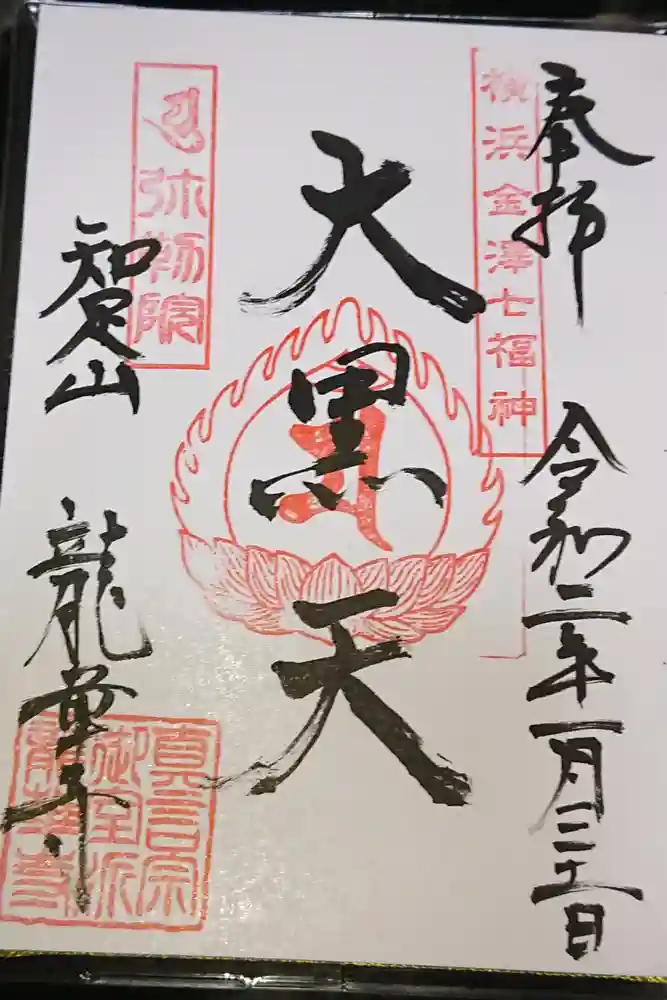 奉拝
令和二年一月三十一日
横浜金澤七福神
大黒天
弥勒院
知足山
龍華寺
真言宗
御室派
龍華寺